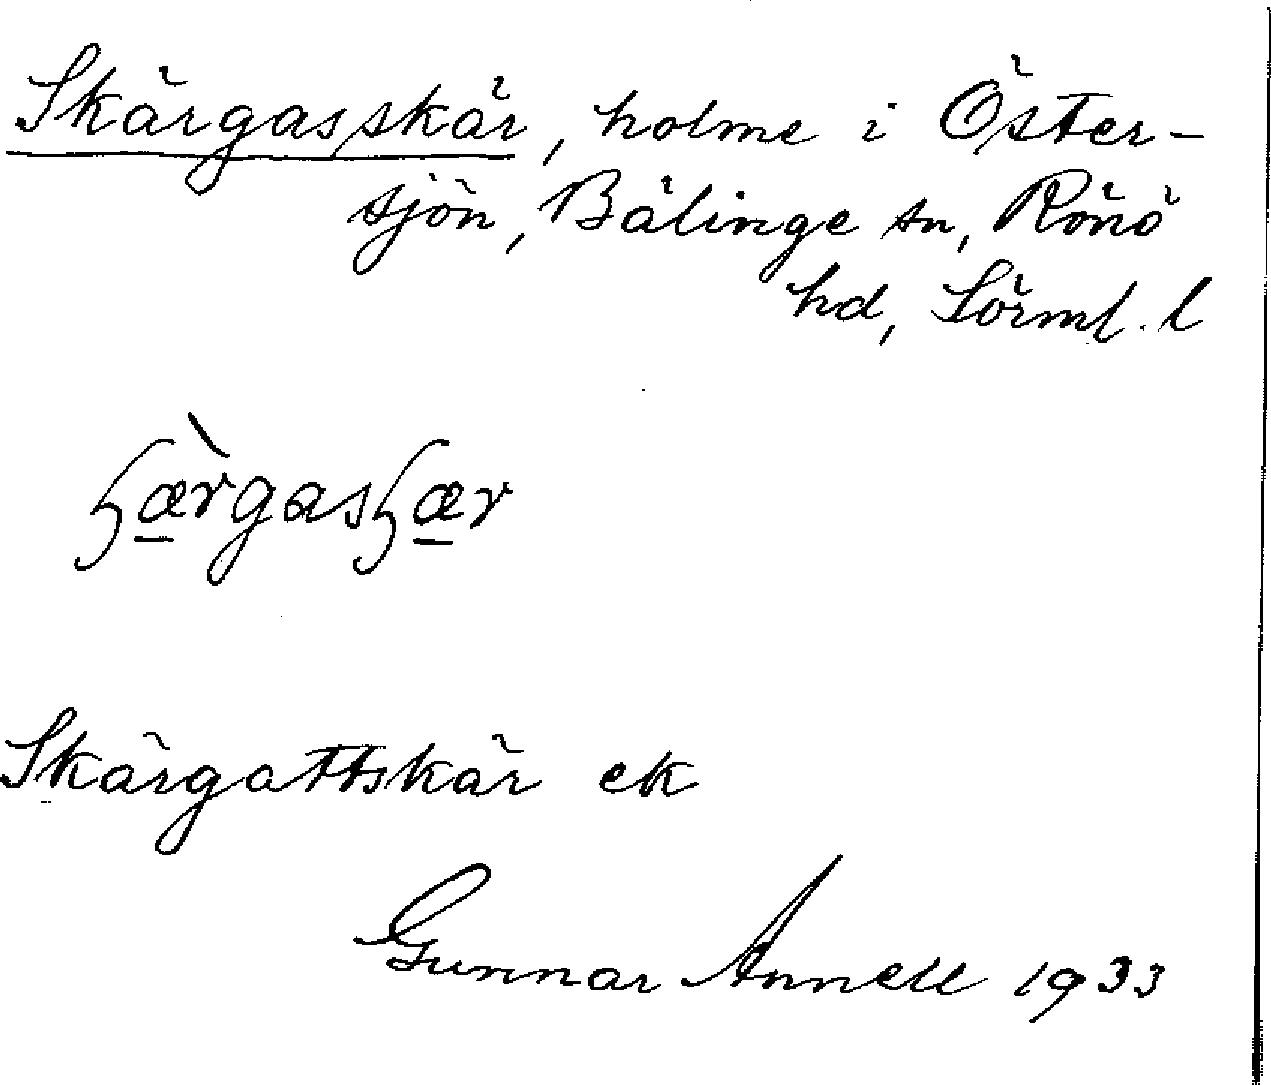 Skärgasskär, holme i Öster-
sjön, Bälinge sn, Rönö
hd, Sörml. l
ɧæ̲̀rgasɧæ̲r
Skärgattskär ek
Gunnar Annell 1933